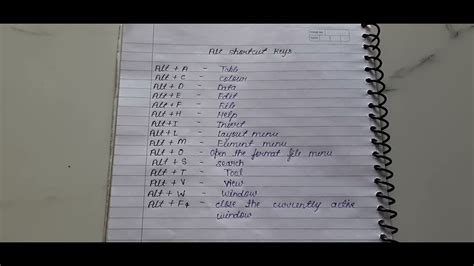 Alt shortcut keys
Alt + A - Table
Alt + C - colour
Alt + D - Data
Alt + E - Edit
Alt + F - File
Alt + H - Help
Alt + I - Insert
Alt + L - layout menu
Alt + M - Element menu
Alt + O - Open the format file menu
Alt + S - Search
Alt + T - Tool
Alt + V - View
Alt + W - Window
Alt + F4 - close the currently active
window